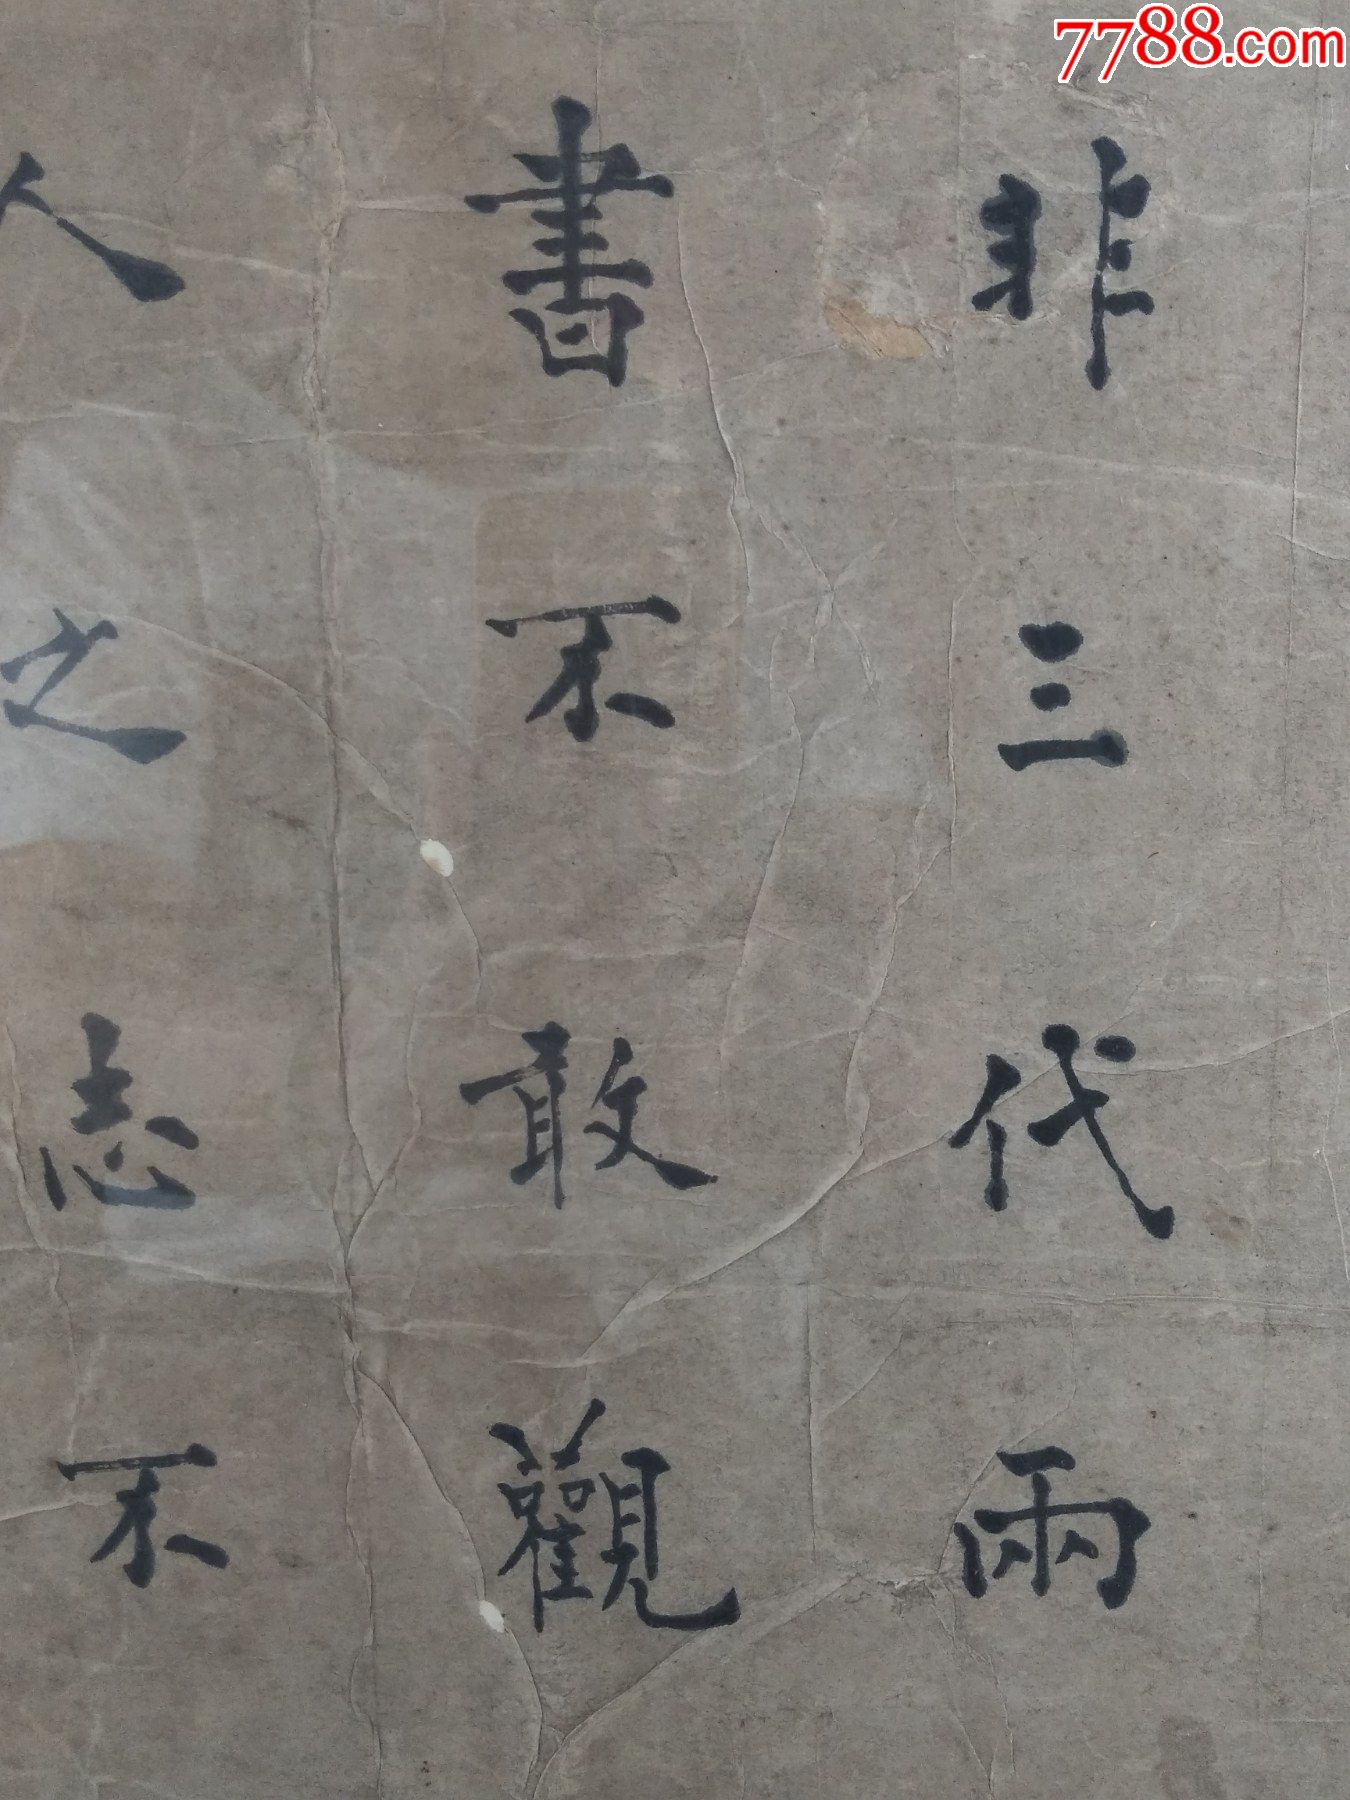 7788.com
非三代兩
書不敢觀
人之志不